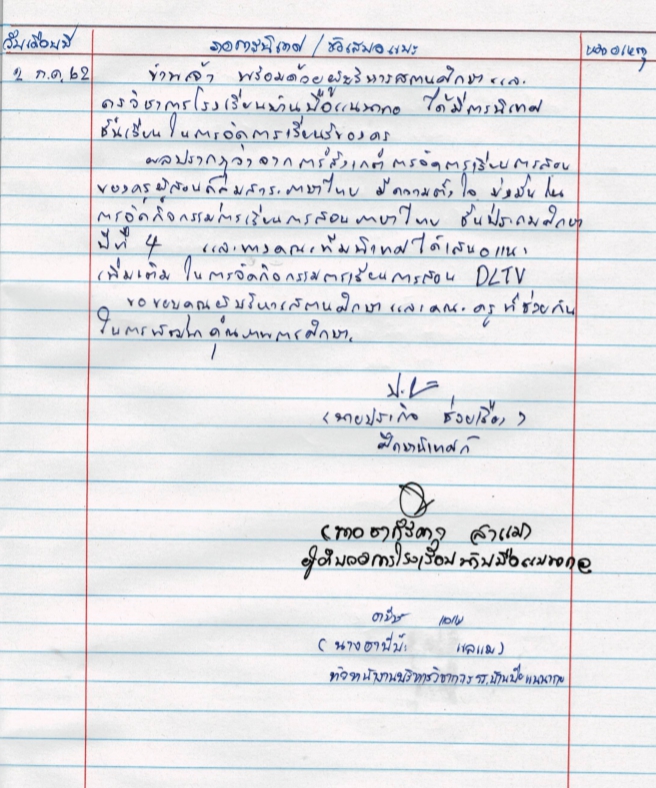 วันเดือนปี รายการนิเทศ / ข้อเสนอแนะ หมายเหตุ
2 ก.ค. 62 ข้าพเจ้า พร้อมด้วยผู้บริหารสถานศึกษา และ
ครูวิชาการโรงเรียนบ้านบือแนนากอ ได้มีการนิเทศ
ชั้นเรียน ในการจัดการเรียนรู้ของครู
ผลปรากฏว่า จากการสังเกต การจัดการเรียนการสอน
ของครูผู้สอนกลุ่มสาระภาษาไทย มีความตั้งใจ มุ่งมั่น ใน
การจัดกิจกรรมการเรียนการสอนภาษาไทย ชั้นประถมศึกษา
ปีที่ 4 และทางคณะทีมนิเทศได้เสนอแนะ
เพิ่มเติม ในการจัดกิจกรรมการเรียนการสอน DLTV
ขอขอบคุณผู้บริหารสถานศึกษา และคณะครู ที่ช่วยกัน
ในการพัฒนาคุณภาพการศึกษา.
(นายประกิจ ช่วยเรือง)
ศึกษานิเทศก์
ผู้อำนวยการโรงเรียนบ้านบือแนนากอ
หัวหน้างานบริหารวิชาการ รร.บ้านบือแนนากอ